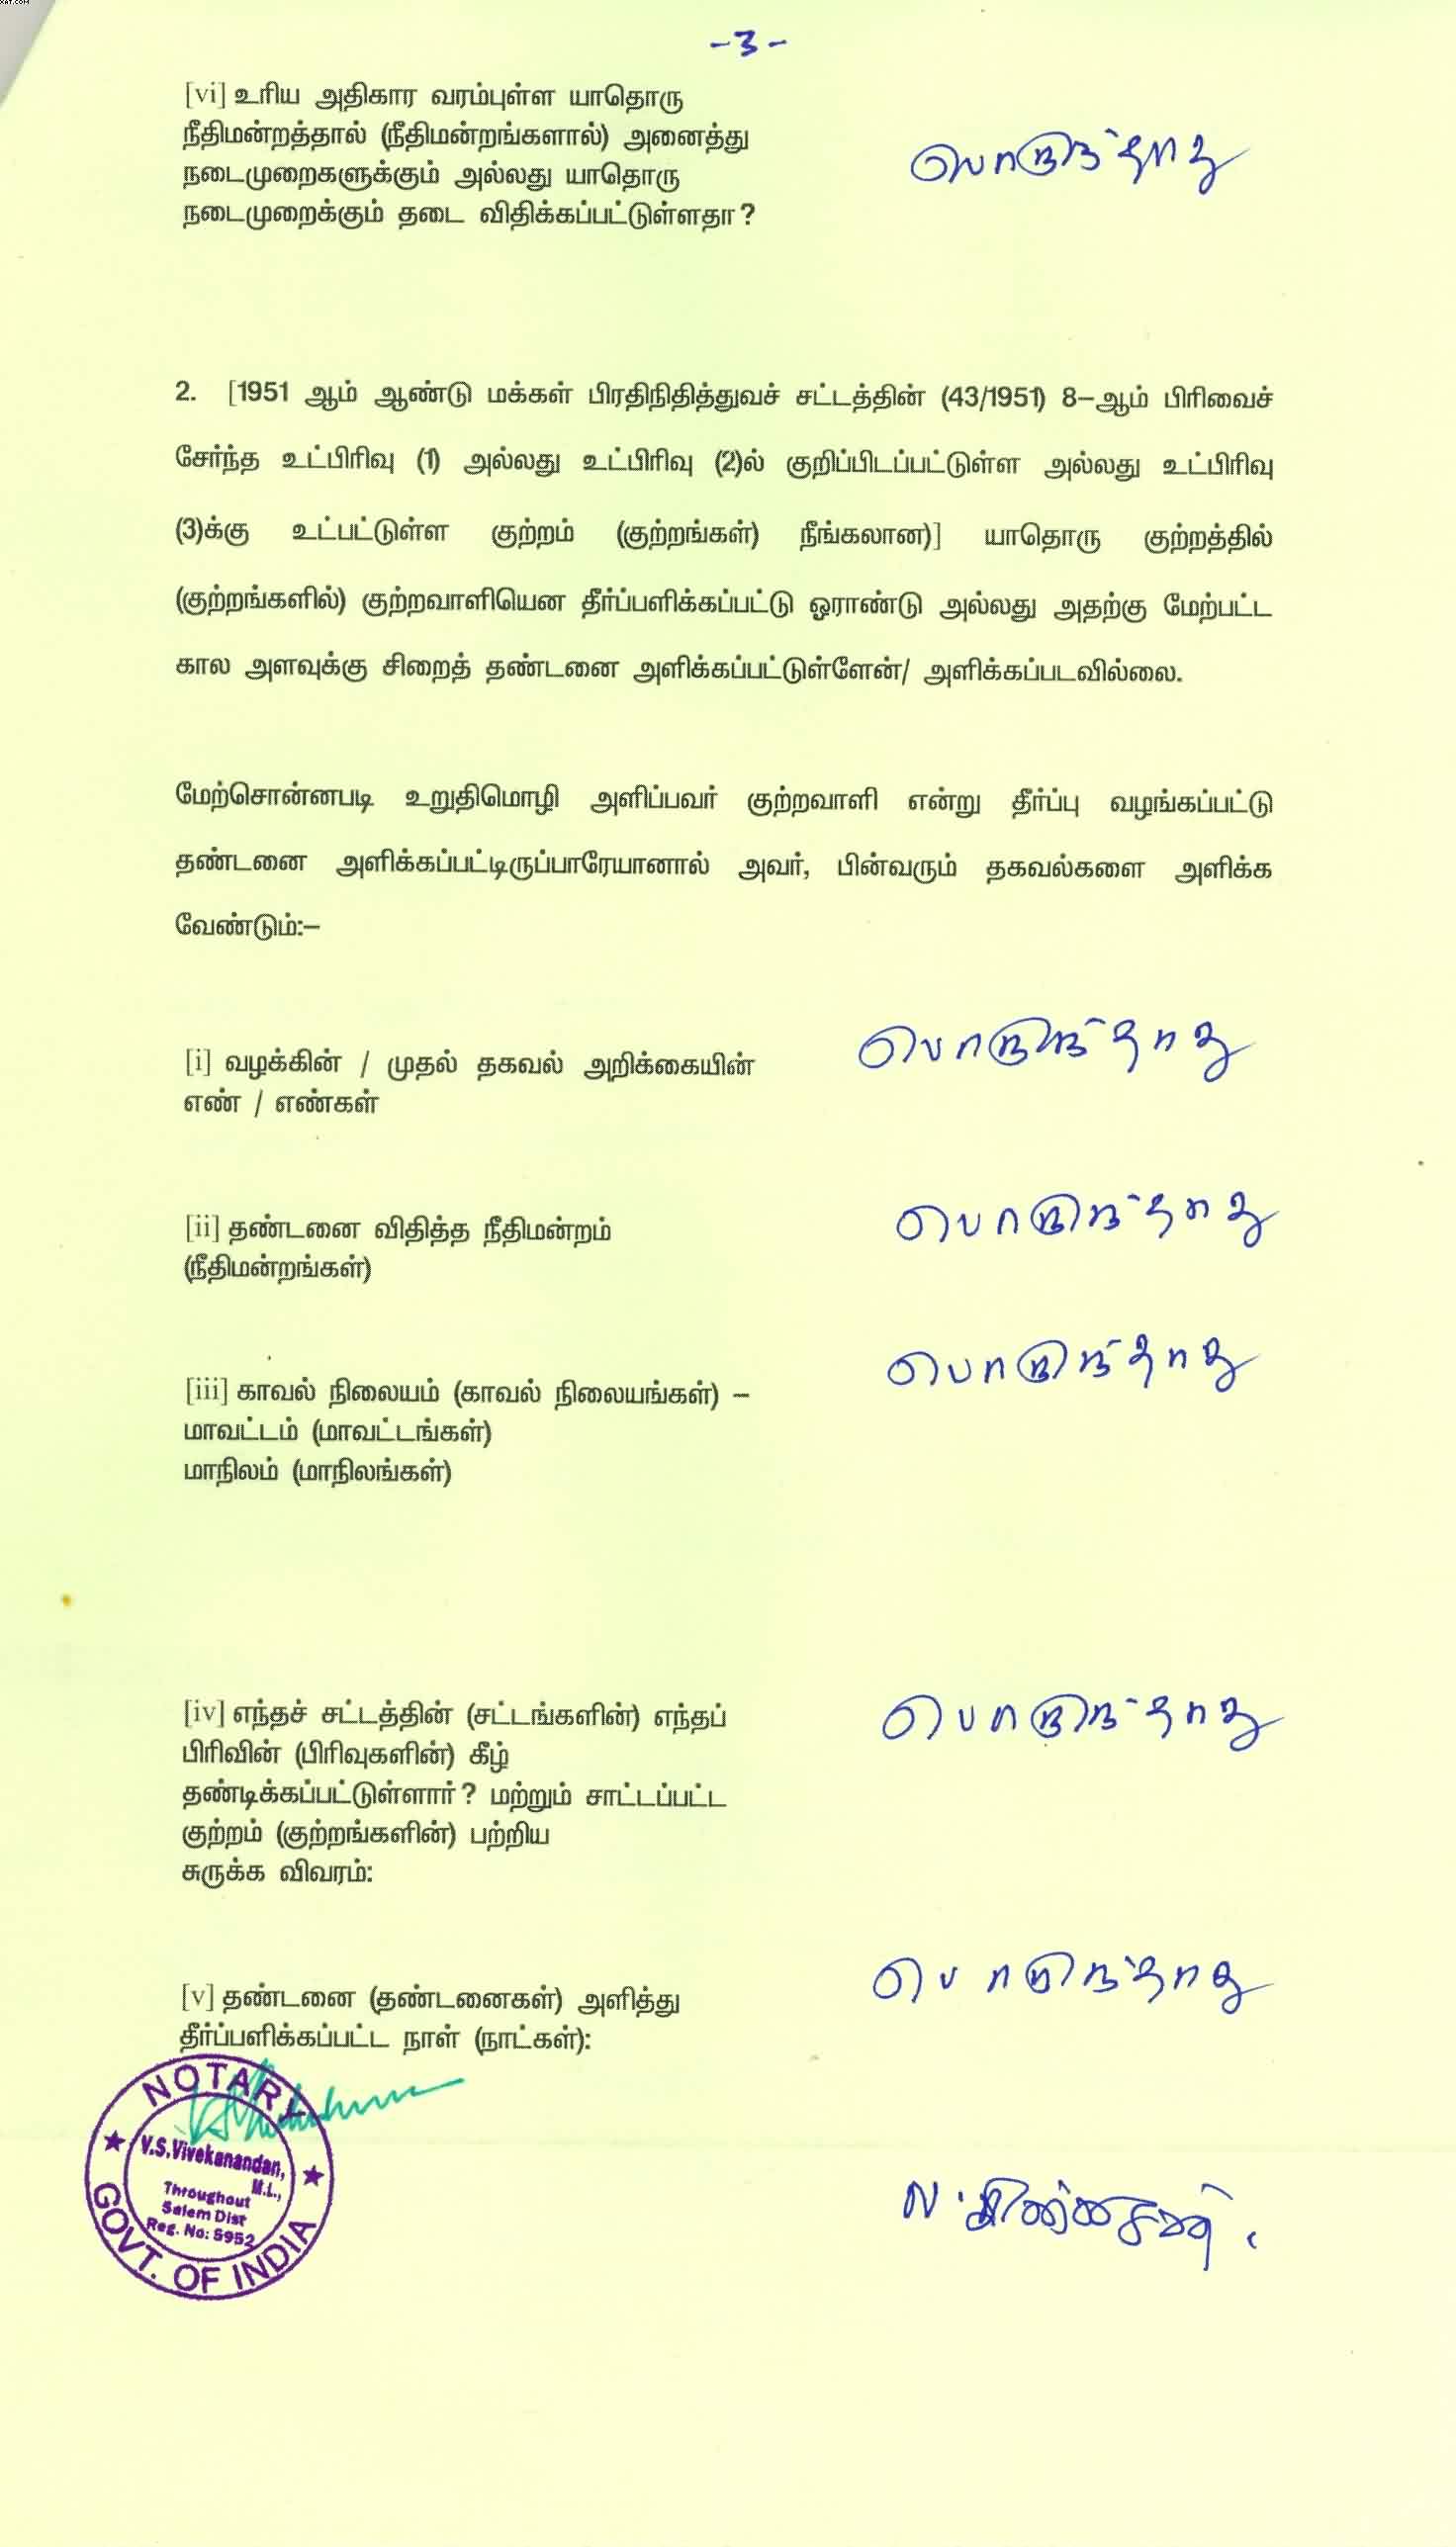 XAT.COM
-3-
[vi] உரிய அதிகார வரம்புள்ள யாதொரு
நீதிமன்றத்தால் (நீதிமன்றங்களால்) அனைத்து
நடைமுறைகளுக்கும் அல்லது யாதொரு
நடைமுறைக்கும் தடை விதிக்கப்பட்டுள்ளதா?
பொருந்தாது
2. [1951 ஆம் ஆண்டு மக்கள் பிரதிநிதித்துவச் சட்டத்தின் (43/1951) 8–ஆம் பிரிவைச்
சேர்ந்த உட்பிரிவு (1) அல்லது உட்பிரிவு (2)ல் குறிப்பிடப்பட்டுள்ள அல்லது உட்பிரிவு
(3)க்கு உட்பட்டுள்ள குற்றம் (குற்றங்கள்) நீங்கலான)] யாதொரு குற்றத்தில்
(குற்றங்களில்) குற்றவாளியென தீர்ப்பளிக்கப்பட்டு ஓராண்டு அல்லது அதற்கு மேற்பட்ட
கால அளவுக்கு சிறைத் தண்டனை அளிக்கப்பட்டுள்ளேன்/ அளிக்கப்படவில்லை.
மேற்சொன்னபடி உறுதிமொழி அளிப்பவர் குற்றவாளி என்று தீர்ப்பு வழங்கப்பட்டு
தண்டனை அளிக்கப்பட்டிருப்பாரேயானால் அவர், பின்வரும் தகவல்களை அளிக்க
வேண்டும்:–
[i] வழக்கின் / முதல் தகவல் அறிக்கையின்
எண் / எண்கள்
பொருந்தாது
[ii] தண்டனை விதித்த நீதிமன்றம்
(நீதிமன்றங்கள்)
பொருந்தாது
[iii] காவல் நிலையம் (காவல் நிலையங்கள்) –
மாவட்டம் (மாவட்டங்கள்)
மாநிலம் (மாநிலங்கள்)
பொருந்தாது
[iv] எந்தச் சட்டத்தின் (சட்டங்களின்) எந்தப்
பிரிவின் (பிரிவுகளின்) கீழ்
தண்டிக்கப்பட்டுள்ளார்? மற்றும் சாட்டப்பட்ட
குற்றம் (குற்றங்களின்) பற்றிய
சுருக்க விவரம்:
பொருந்தாது
[v] தண்டனை (தண்டனைகள்) அளித்து
தீர்ப்பளிக்கப்பட்ட நாள் (நாட்கள்):
பொருந்தாது
NOTARY
V.S.Vivekanandan,
M.L.,
Throughout
Salem Dist
Reg. No: 5952
GOVT. OF INDIA